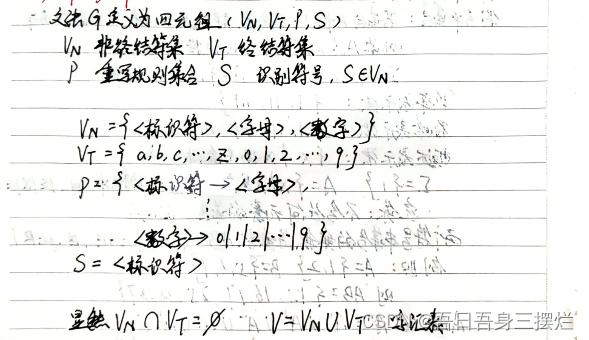 文法G定义为四元组(VN,VT,P,S)
VN 非终结符集 VT 终结符集
P 重写规则集合 S 识别符号,S∈VN
VN={<标识符>,<字母>,<数字>}
VT={a,b,c,…,z,0,1,2,…,9}
P={<标识符→<字母>,
⋮
<数字>→0|1|2|…|9}
S=<标识符>
显然 VN∩VT=∅ V=VN∪VT
CSDN@吾日吾身三摆烂